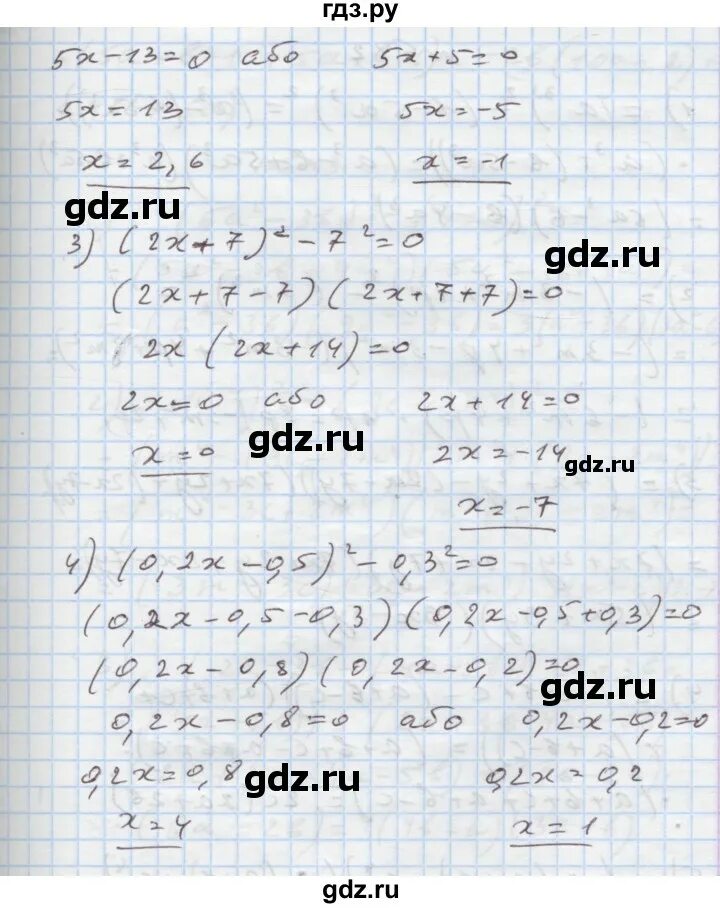 гдз.ру
5x-13=0 або 5x+5=0
5x=13 5x=-5
x=2,6 x=-1
gdz.ru
3) (2x+7)²-7²=0
gdz.ru
(2x+7-7)(2x+7+7)=0
2x(2x+14)=0
2x=0 або 2x+14=0
gdz.ru
x=0 2x=-14
gdz.ru
x=-7
4) (0,2x-0,5)²-0,3²=0
(0,2x-0,5-0,3)(0,2x-0,5+0,3)=0
(0,2x-0,8)(0,2x-0,2)=0
gdz.ru
0,2x-0,8=0 або 0,2x-0,2=0
0,2x=0,8 0,2x=0,2
gdz.ru
x=4 x=1
gdz.ru